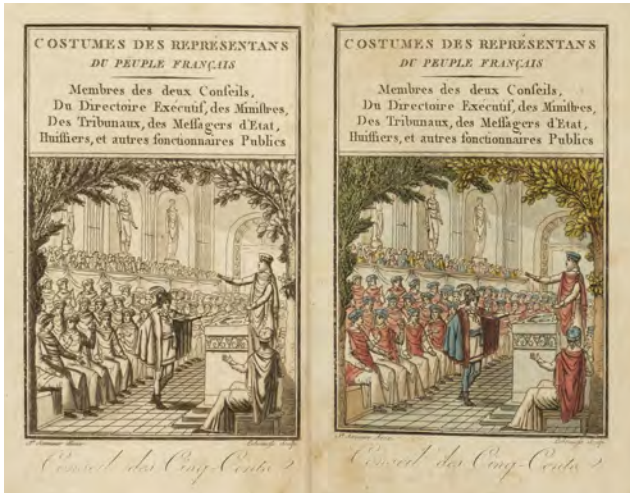 COSTUMES DES REPRÉSENTANS
DU PEUPLE FRANÇAIS
Membres des deux Conſeils,
Du Directoire Exécutif, des Miniſtres,
Des Tribunaux, des Meſſagers d'Etat,
Huiſſiers, et autres fonctionnaires Publics
Conseil des Cinq-Cents
COSTUMES DES REPRÉSENTANS
DU PEUPLE FRANÇAIS
Membres des deux Conſeils,
Du Directoire Exécutif, des Miniſtres,
Des Tribunaux, des Meſſagers d'Etat,
Huiſſiers, et autres fonctionnaires Publics
Conseil des Cinq-Cents